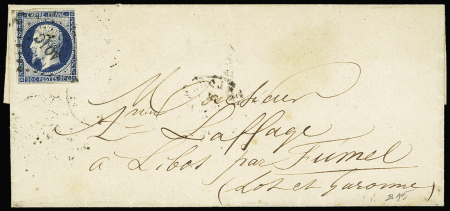 EMPIRE FRANC
20 c POSTES 20 c
Monsieur
Laffage
à Libos par Fumel
(Lot et Garonne)